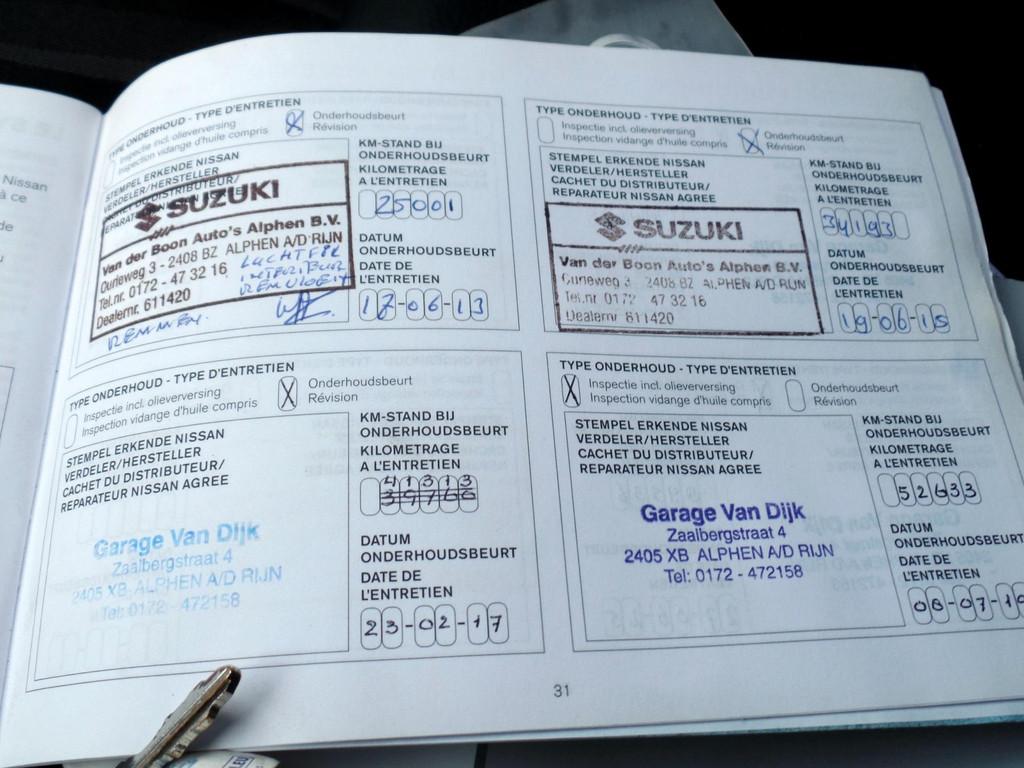 Nissan
à ce
TYPE ONDERHOUD - TYPE D'ENTRETIEN
Inspectie incl. olieverversing
Inspection vidange d'huile compris
X Onderhoudsbeurt
Révision
STEMPEL ERKENDE NISSAN
VERDELER/HERSTELLER
CACHET DU DISTRIBUTEUR/
SUZUKI
Van der Boon Auto's Alphen B.V.
Ourieweg 3 - 2408 BZ ALPHEN A/D RIJN
Tel.nr. 0172 - 47 32 16
Dealernr. 611420
LUCHTFIL
INTERIEUR
REMVLOEIST
REMMEN.
KM-STAND BIJ
ONDERHOUDSBEURT
KILOMETRAGE
A L'ENTRETIEN
25001
DATUM
ONDERHOUDSBEURT
DATE DE
L'ENTRETIEN
17-06-13
TYPE ONDERHOUD - TYPE D'ENTRETIEN
Inspectie incl. olieverversing
Inspection vidange d'huile compris
X Onderhoudsbeurt
Révision
STEMPEL ERKENDE NISSAN
VERDELER/HERSTELLER
CACHET DU DISTRIBUTEUR/
REPARATEUR NISSAN AGREE
SUZUKI
Van der Boon Auto's Alphen B.V.
Ourieweg 3 2408 BZ ALPHEN A/D RIJN
Tel.nr 0172 47 32 16
Dealernr 611420
KM-STAND BIJ
ONDERHOUDSBEURT
KILOMETRAGE
A L'ENTRETIEN
34193
DATUM
ONDERHOUDSBEURT
DATE DE
L'ENTRETIEN
19-06-15
TYPE ONDERHOUD - TYPE D'ENTRETIEN
Inspectie incl. olieverversing
Inspection vidange d'huile compris
X Onderhoudsbeurt
Révision
STEMPEL ERKENDE NISSAN
VERDELER/HERSTELLER
CACHET DU DISTRIBUTEUR/
REPARATEUR NISSAN AGREE
Garage Van Dijk
Zaalbergstraat 4
2405 XB ALPHEN A/D RIJN
Tel: 0172 - 472158
KM-STAND BIJ
ONDERHOUDSBEURT
KILOMETRAGE
A L'ENTRETIEN
41313
39766
DATUM
ONDERHOUDSBEURT
DATE DE
L'ENTRETIEN
23-02-17
TYPE ONDERHOUD - TYPE D'ENTRETIEN
X Inspectie incl. olieverversing
Inspection vidange d'huile compris
Onderhoudsbeurt
Révision
STEMPEL ERKENDE NISSAN
VERDELER/HERSTELLER
CACHET DU DISTRIBUTEUR/
REPARATEUR NISSAN AGREE
Garage Van Dijk
Zaalbergstraat 4
2405 XB ALPHEN A/D RIJN
Tel: 0172 - 472158
KM-STAND BIJ
ONDERHOUDSBEURT
KILOMETRAGE
A L'ENTRETIEN
52633
DATUM
ONDERHOUDSBEURT
DATE DE
L'ENTRETIEN
08-07-1
31